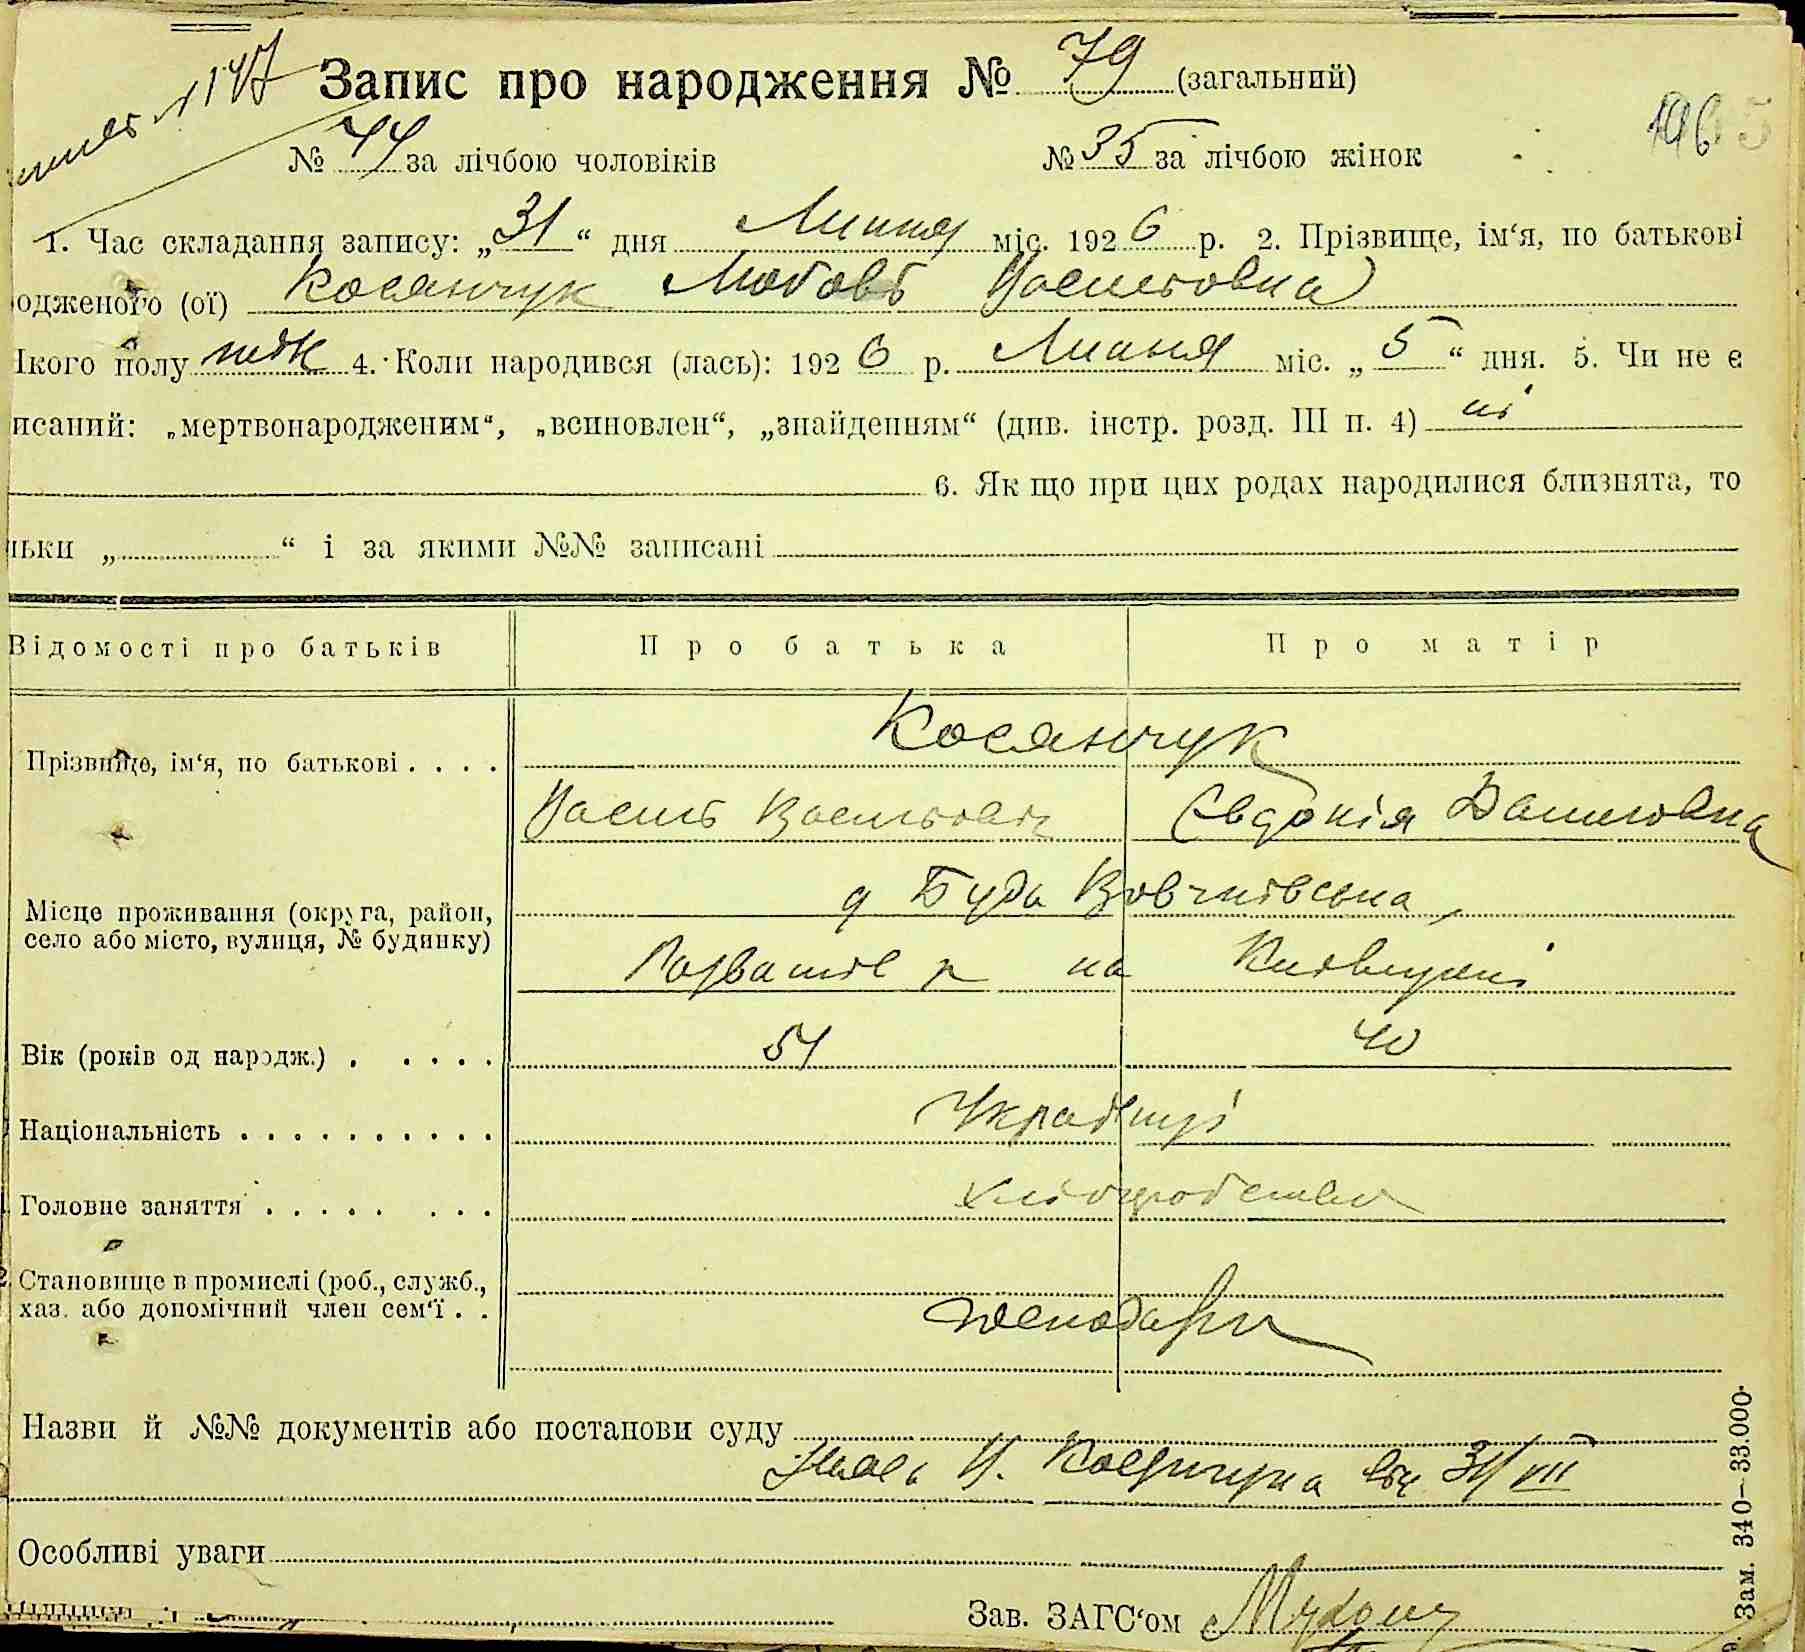 Запис про народження № 79 (загальний)
№ 44 за лічбою чоловіків № 35 за лічбою жінок
1. Час складання запису: „31“ дня Липня міс. 1926 р. 2. Прізвище, ім‘я, по батькові
одженого (ої) Косянчук Любовь Васильовна
якого полу жін 4. Коли народився (лась): 1926 р. Липня міс. „5“ дня. 5. Чи не є
исаний: „мертвонародженим“, „всиновлен“, „знайденням“ (див. інстр. розд. III п. 4) ні
6. Як що при цих родах народилися близнята, то
льки „ “ і за якими №№ записані
Відомості про батьків Про батька Про матір
Косянчук
Прізвище, ім‘я, по батькові . . . .
Василь Васильович Євдокія Даниловна
д Буда Вовчківська,
Місце проживання (округа, район,
село або місто, вулиця, № будинку)
Розважів р на Київщині
Вік (років од народж.) . . . . . 51 40
Національність . . . . . . . . . . Українці
Головне заняття . . . . . . . . хліборобство
Становище в промислі (роб., служб.,
хаз. або допомічний член сем‘ї . . господари
Назви й №№ документів або постанови суду
від 31/VII
Особливі уваги
Зав. ЗАГС‘ом
Зам. 340–33.000